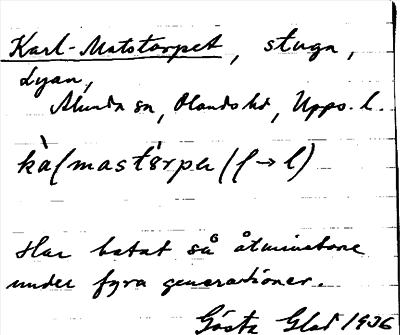 Karl-Matstorpet, stuga,
Lyan,
Alunda sn, Olands hd, Upps. l.
kàſmastårpeꞏ (ſ → l)
Har hetat så åtminstone
under fyra generationer.
Gösta Glad 1936